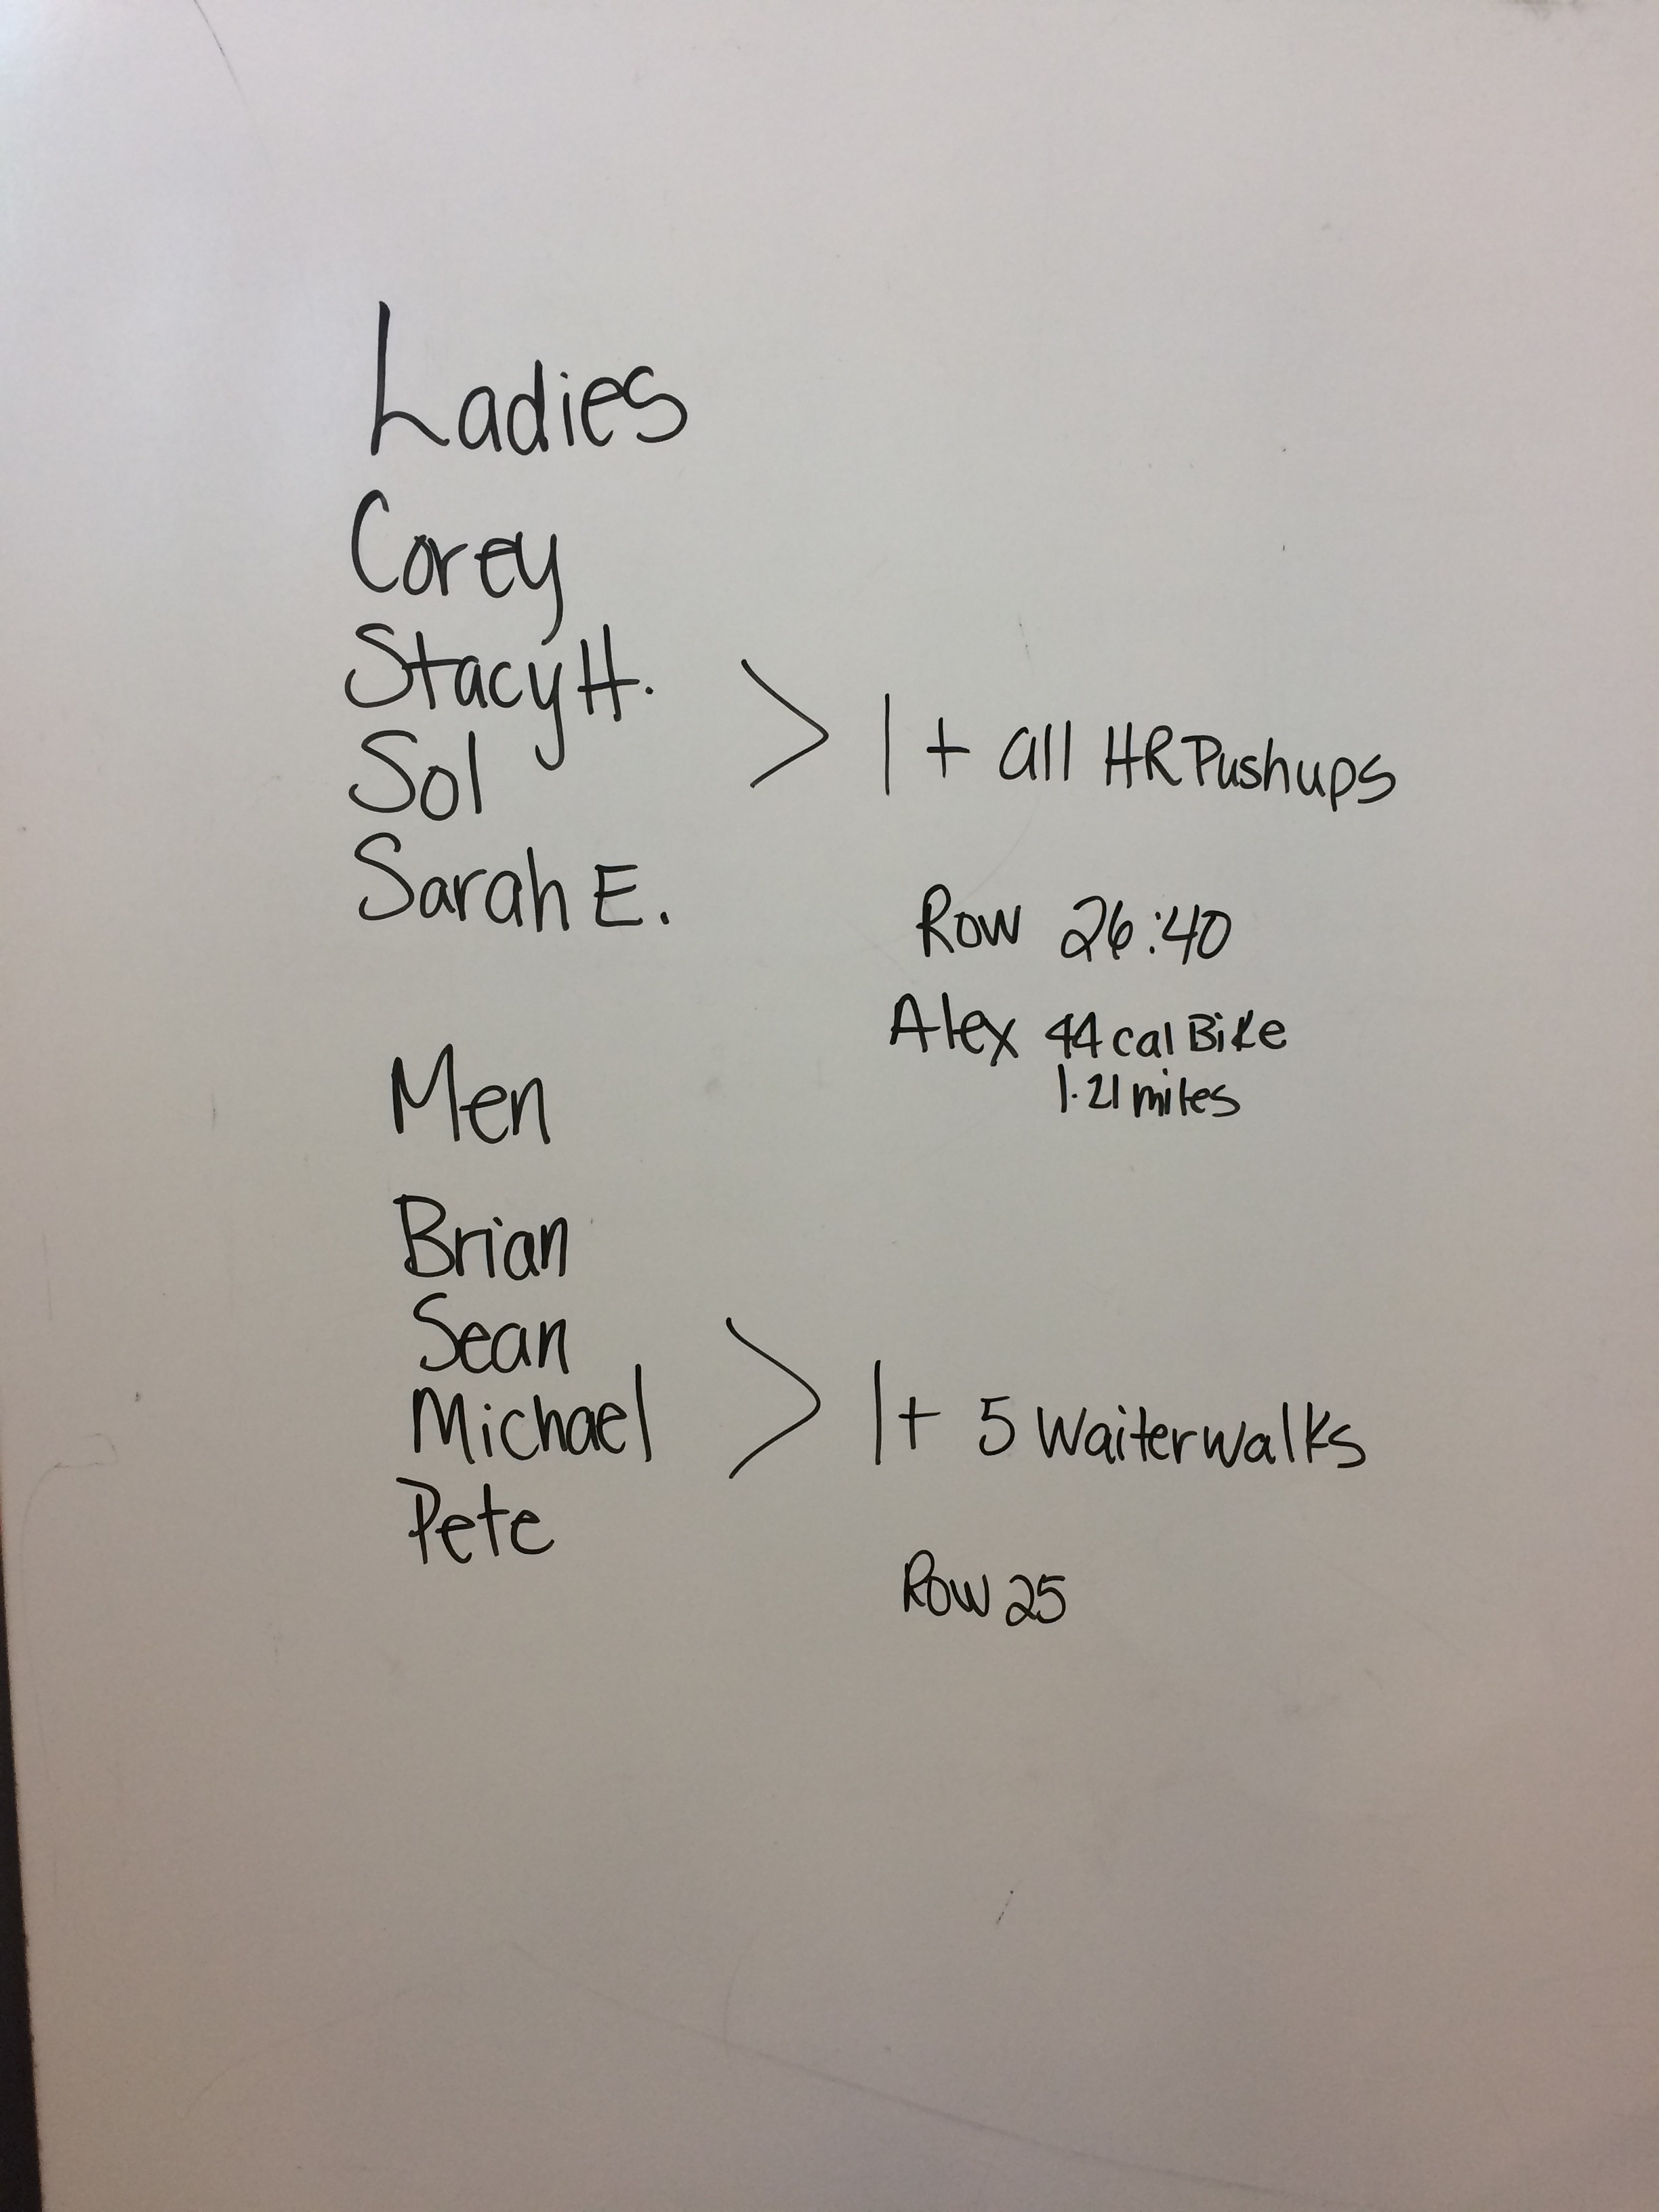 Ladies
Corey
Stacy H.
Sol
Sarah E.
> 1 + all HR Pushups
Row 26:40
Alex 44 cal Bike
1.21 miles
Men
Brian
Sean
Michael
Pete
> 1+ 5 Waiterwalks
Row 25